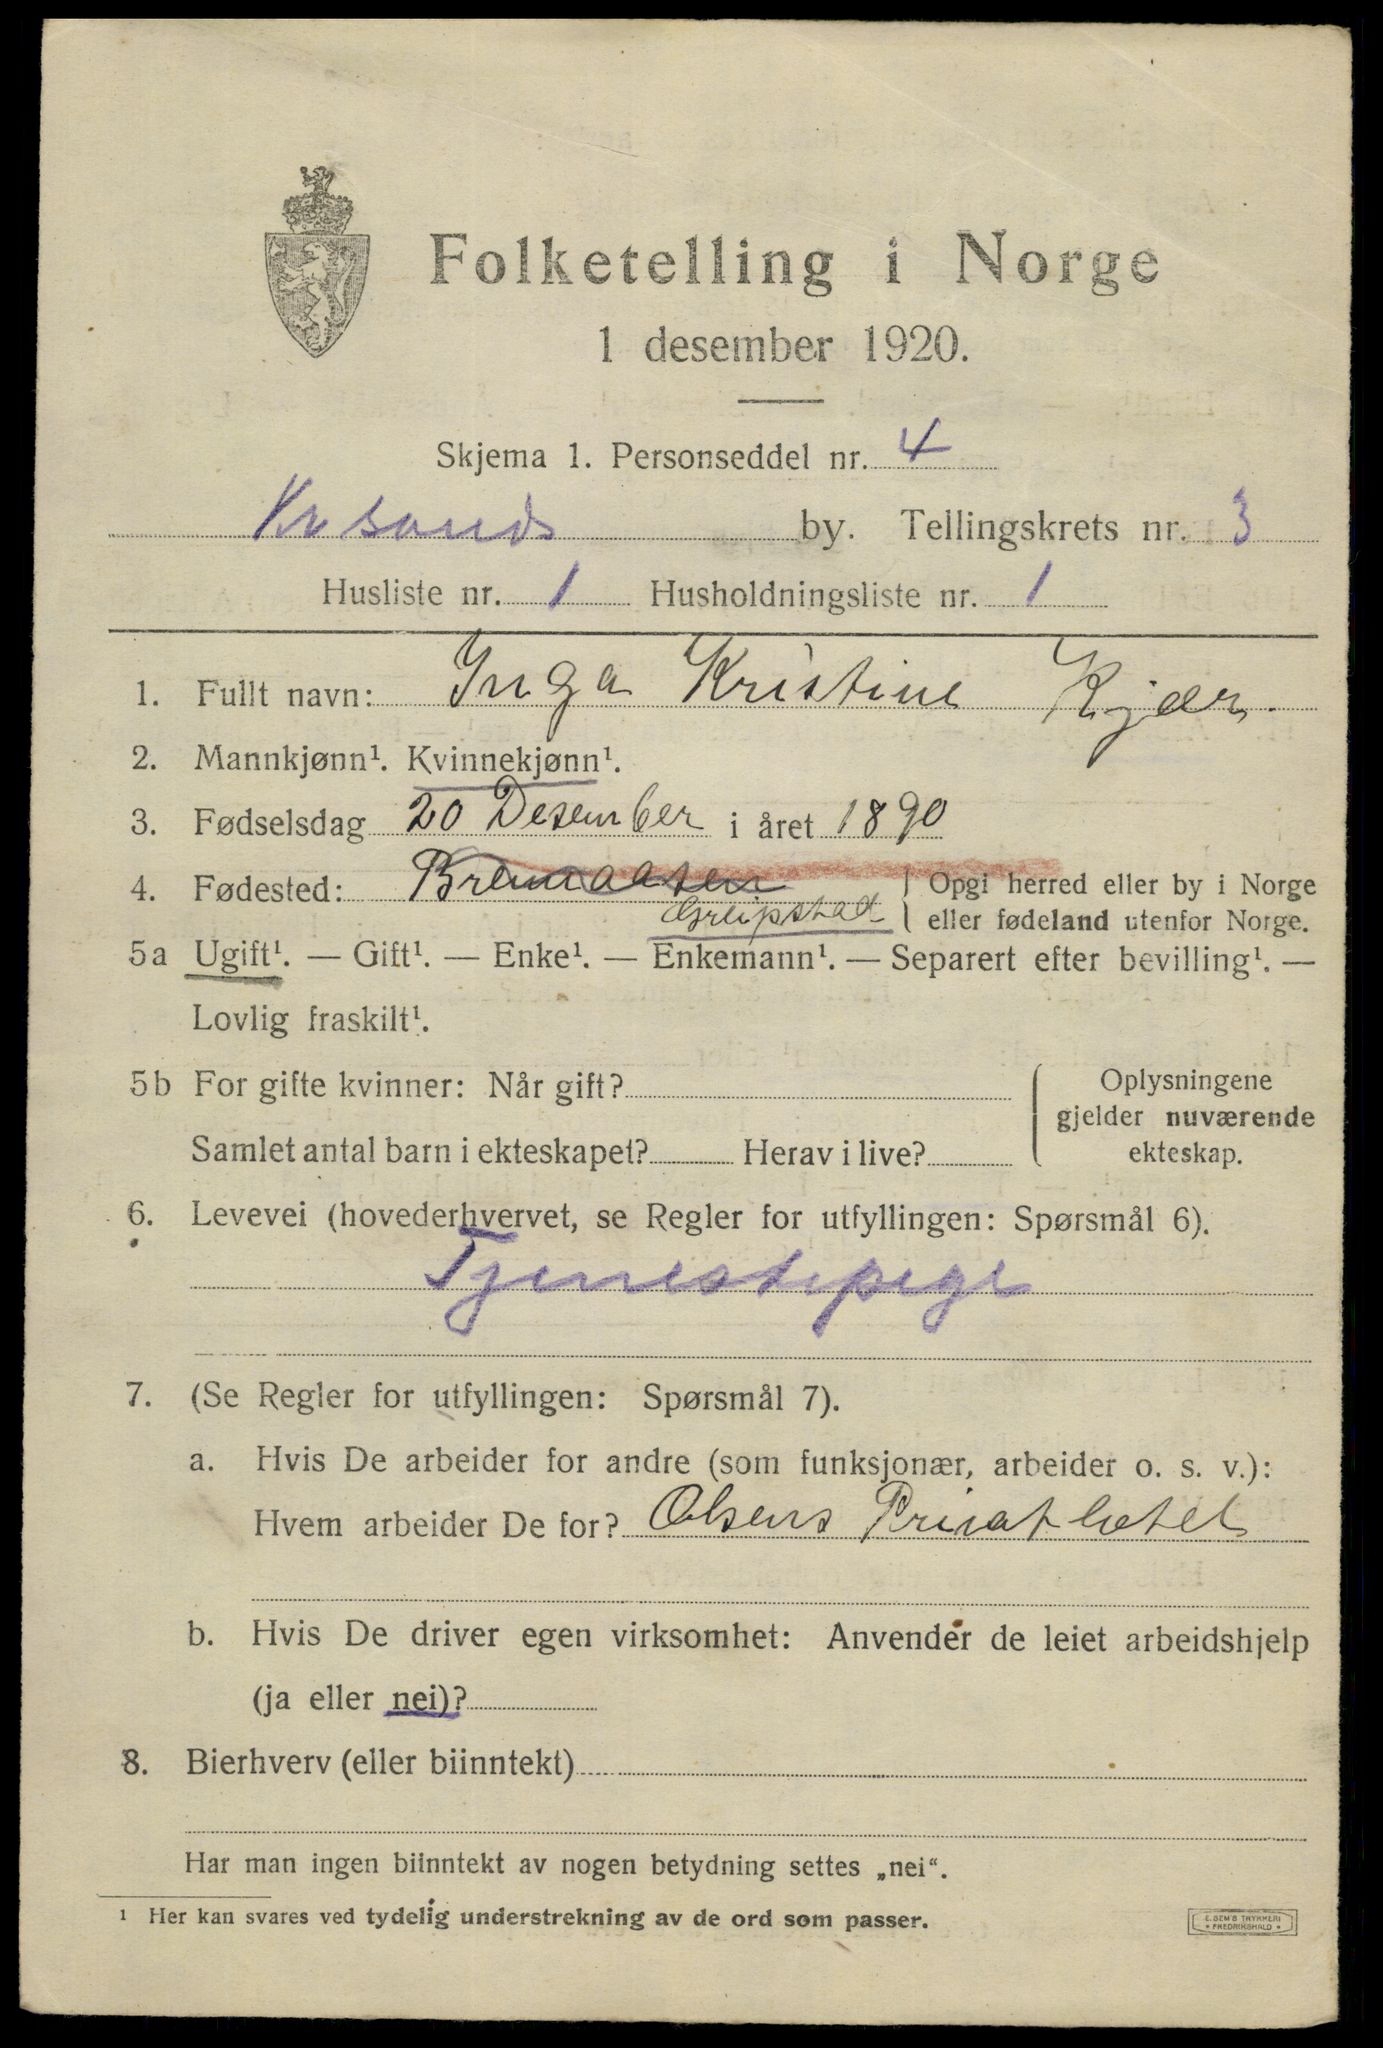 Folketelling i Norge
1 desember 1920.
Skjema 1. Personseddel nr. 4
Krsands by. Tellingskrets nr. 3
Husliste nr. 1 Husholdningsliste nr. 1
1. Fullt navn: Inga Kristine Kjær
2. Mannkjønn¹. Kvinnekjønn¹.
3. Fødselsdag 20 Desember i året 1890
4. Fødested: Opgi herred eller by i Norge
Greipstad eller fødeland utenfor Norge.
5a Ugift¹. — Gift¹. — Enke¹. — Enkemann¹. — Separert efter bevilling¹. —
Lovlig fraskilt¹.
5b For gifte kvinner: Når gift? Oplysningene
gjelder nuværende
Samlet antal barn i ekteskapet? Herav i live? ekteskap.
6. Levevei (hovederhvervet, se Regler for utfyllingen: Spørsmål 6).
Tjenestepige
7. (Se Regler for utfyllingen: Spørsmål 7).
a. Hvis De arbeider for andre (som funksjonær, arbeider o. s. v.):
Hvem arbeider De for? Olsens Privathotel
b. Hvis De driver egen virksomhet: Anvender de leiet arbeidshjelp
(ja eller nei)?
8. Bierhverv (eller biinntekt)
Har man ingen biinntekt av nogen betydning settes „nei“.
¹ Her kan svares ved tydelig understrekning av de ord som passer.
E. SEM'S TRYKKERI
• FREDRIKSHALD •